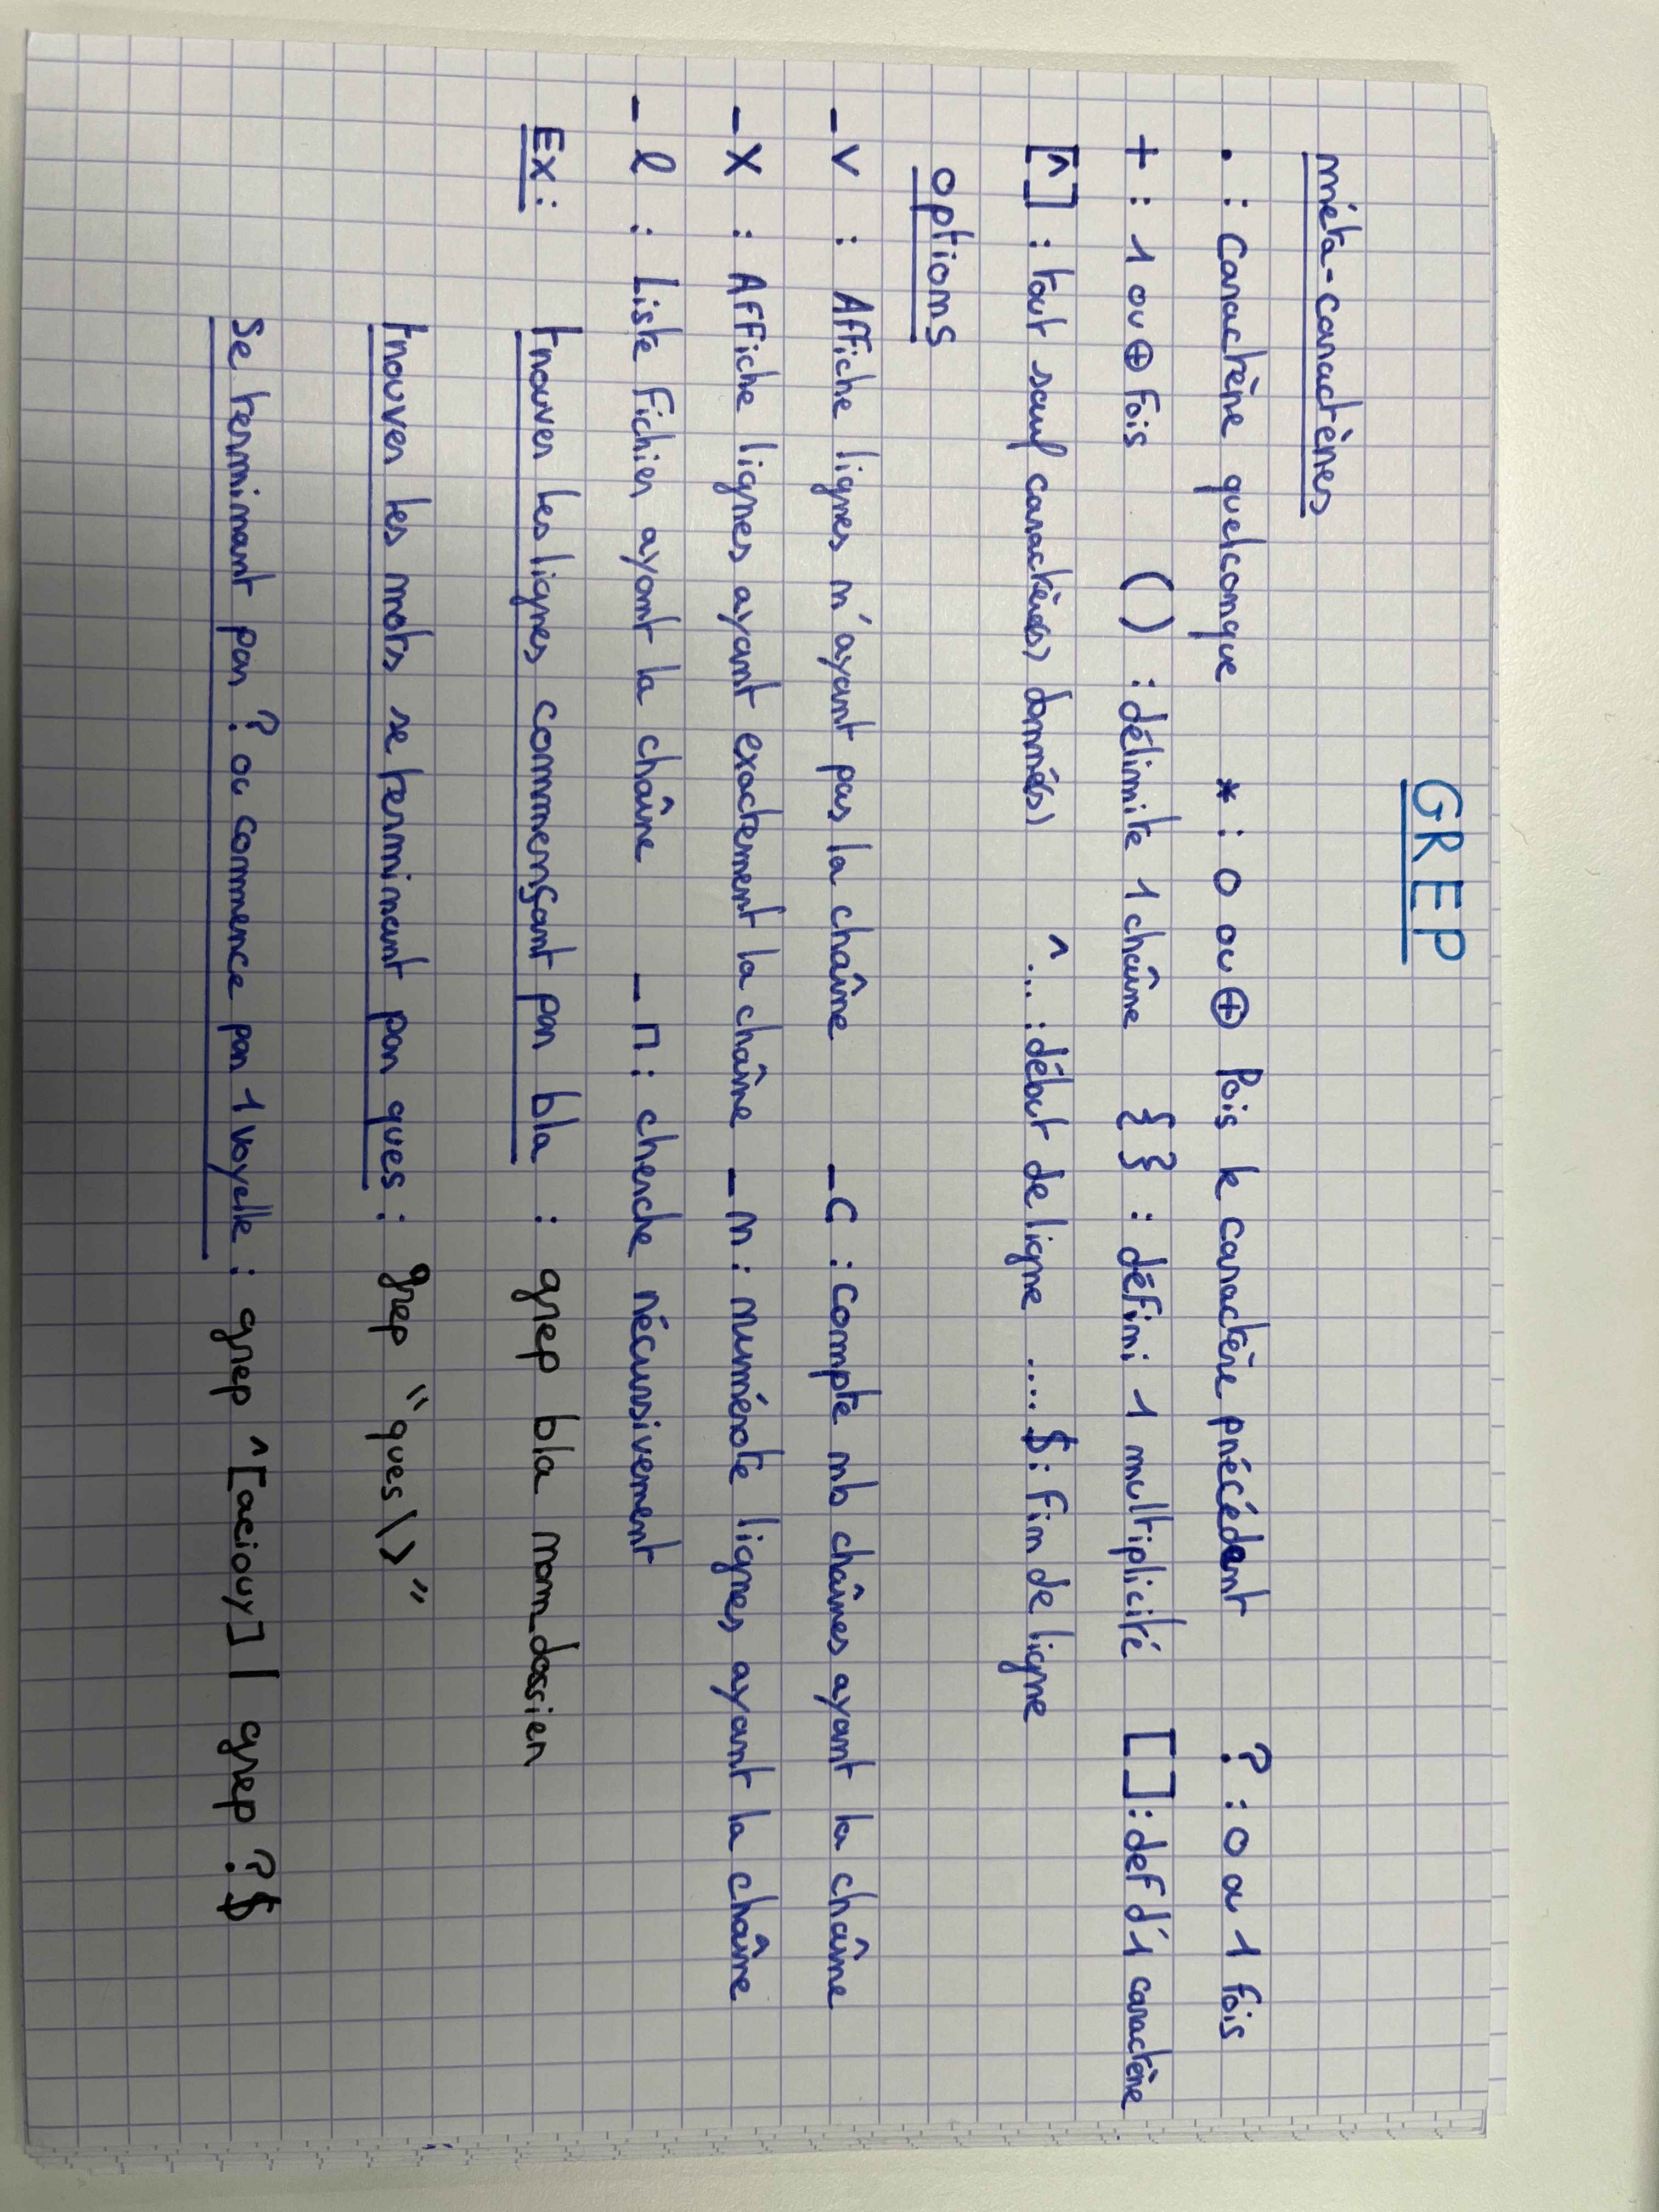 GREP
méta-caractères
. : caractère quelconque * : 0 ou ⊕ fois le caractère précédent ? : 0 ou 1 fois
+ : 1 ou ⊕ fois ( ) : délimite 1 chaîne { } : défini 1 multiplicité [ ] : def d'1 caractère
[^] : tout sauf caractère(s) donné(s) ^... : début de ligne ....$ : fin de ligne
options
_v : Affiche lignes n'ayant pas la chaîne _c : compte nb chaînes ayant la chaîne
_x : Affiche lignes ayant exactement la chaîne _n : numérote lignes ayant la chaîne
_l : Liste fichier ayant la chaîne _r : cherche récursivement
Ex : trouver les lignes commençant par bla : grep bla nom_dossier
trouver les mots se terminant par ques : grep "ques\>"
se terminant par ? ou commence par 1 voyelle : grep ^[aeiouy] | grep ?$